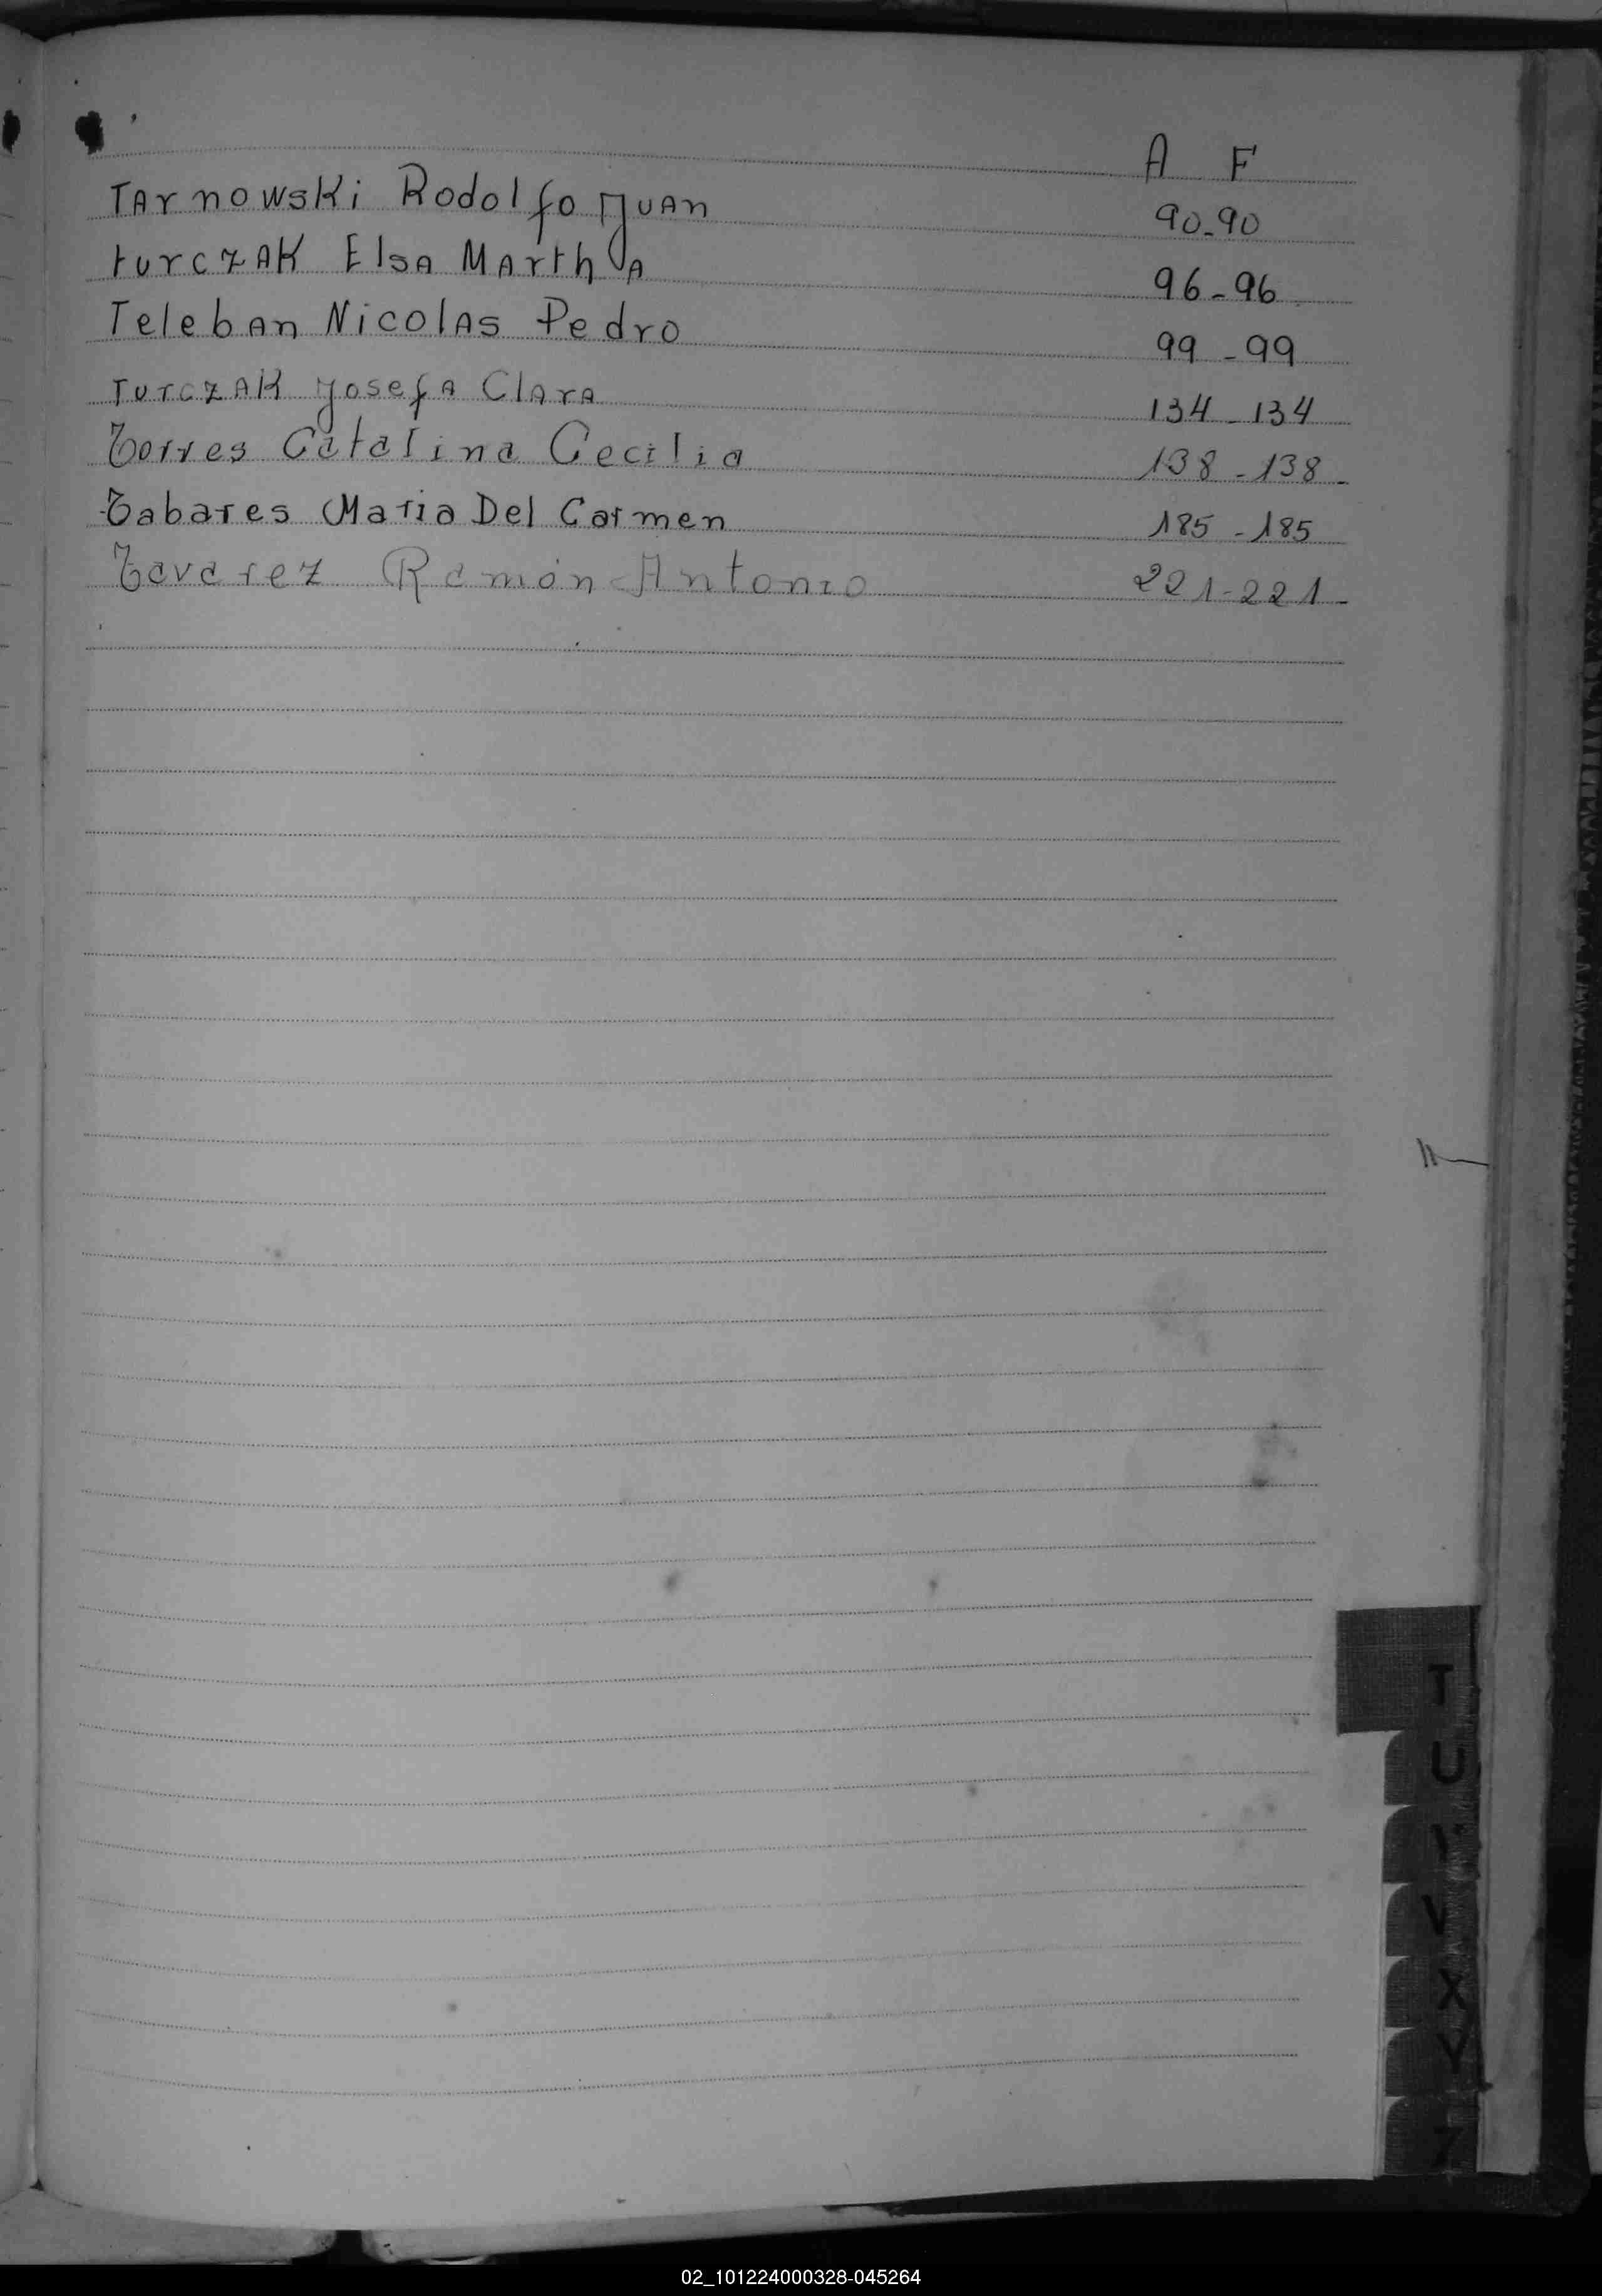 A F
Tarnowski Rodolfo Juan 90-90
turczak Elsa Martha 96-96
Teleban Nicolas Pedro 99-99
Turczak Josefa Clara 134-134
Torres Catalina Cecilia 138-138
Tabares Maria Del Carmen 185-185
Tavarez Ramón Antonio 221-221
T
U
V
X
Y
Z
02_101224000328-045264